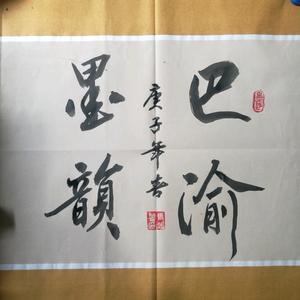 巴渝
墨韻
庚子年春